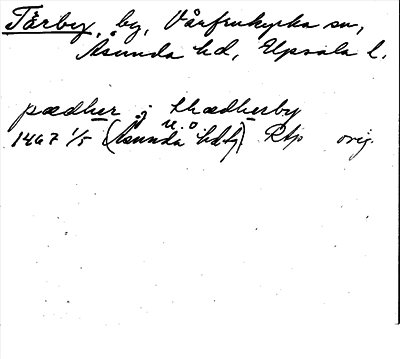 Tärby, by, Vårfrukyrka sn,
Åsunda hd, Upsala l.
pædher j thædherby
1467 1/5 (Åsunda hd) Rap orig.